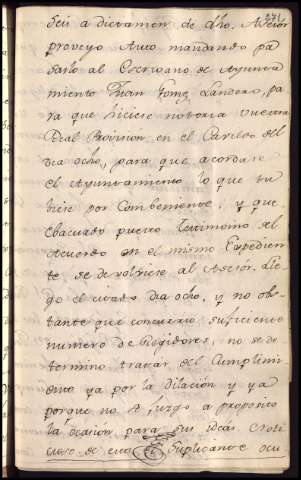 271
seis a dictamen de dho. Asesor
proveyo Auto mandando pa
sarlo al Escrivano de Ayunta
miento Juan Gomez Landero, pa
ra que hiciese notoria vuestra
Real Provision en el Cavildo del
dia ocho, para que acordase
el Ayuntamiento lo que tu
biese por combeniente; y que
Ebacuado puesto testimonio del
Acuerdo en el mismo Expedien
te se debolviese al Asesor. Lle
go el citado dia ocho, y no obs
tante que concurrio suficiente
numero de Regidores, no se de
termino tratar del Cumplimi
ento ya por la dilación y ya
porque no se juzgo a proposito
la ocasión para sus ideas
de ello Suplicaron e ocu